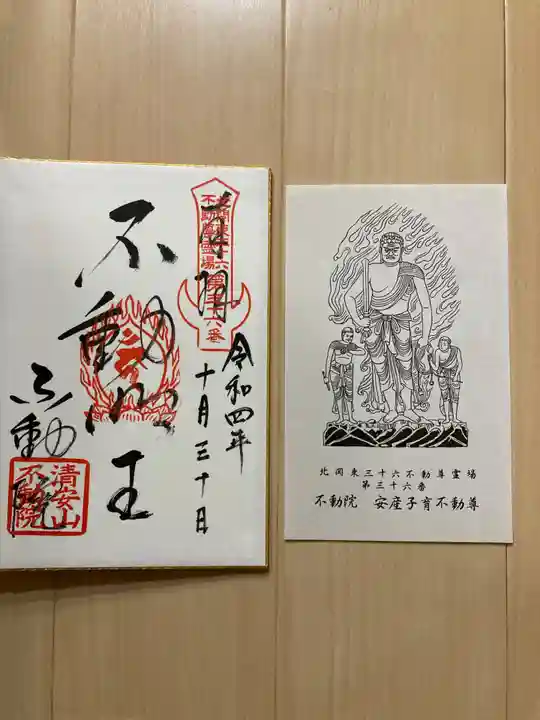 奉拝
北関東三十六
不動尊霊場
第三十六番
令和四年
十月三十日
不動明王
不動院
清安山
不動院
北関東三十六不動尊霊場
第三十六番
不動院 安産子育不動尊